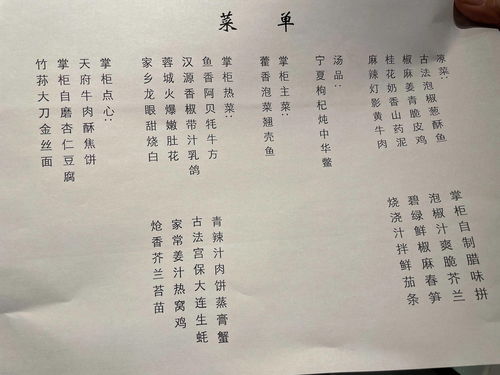 菜单
凉菜:
古法泡椒葱酥鱼
椒麻姜青脆皮鸡
桂花奶香山药泥
麻辣灯影黄牛肉
掌柜自制腊味拼
泡椒汁爽脆芥兰
碧绿鲜椒麻春笋
烧浇汁拌鲜茄条
汤品:
宁夏枸杞炖中华鳖
掌柜主菜:
藿香泡菜翘壳鱼
掌柜热菜:
鱼香阿贝牦牛方
汉源香椒带汁乳鸽
蓉城火爆嫩肚花
家乡龙眼甜烧白
青辣汁肉饼蒸膏蟹
古法宫保大连生蚝
家常姜汁热窝鸡
炝香芥兰苔苗
掌柜点心:
天府牛肉酥焦饼
掌柜自磨杏仁豆腐
竹荪大刀金丝面